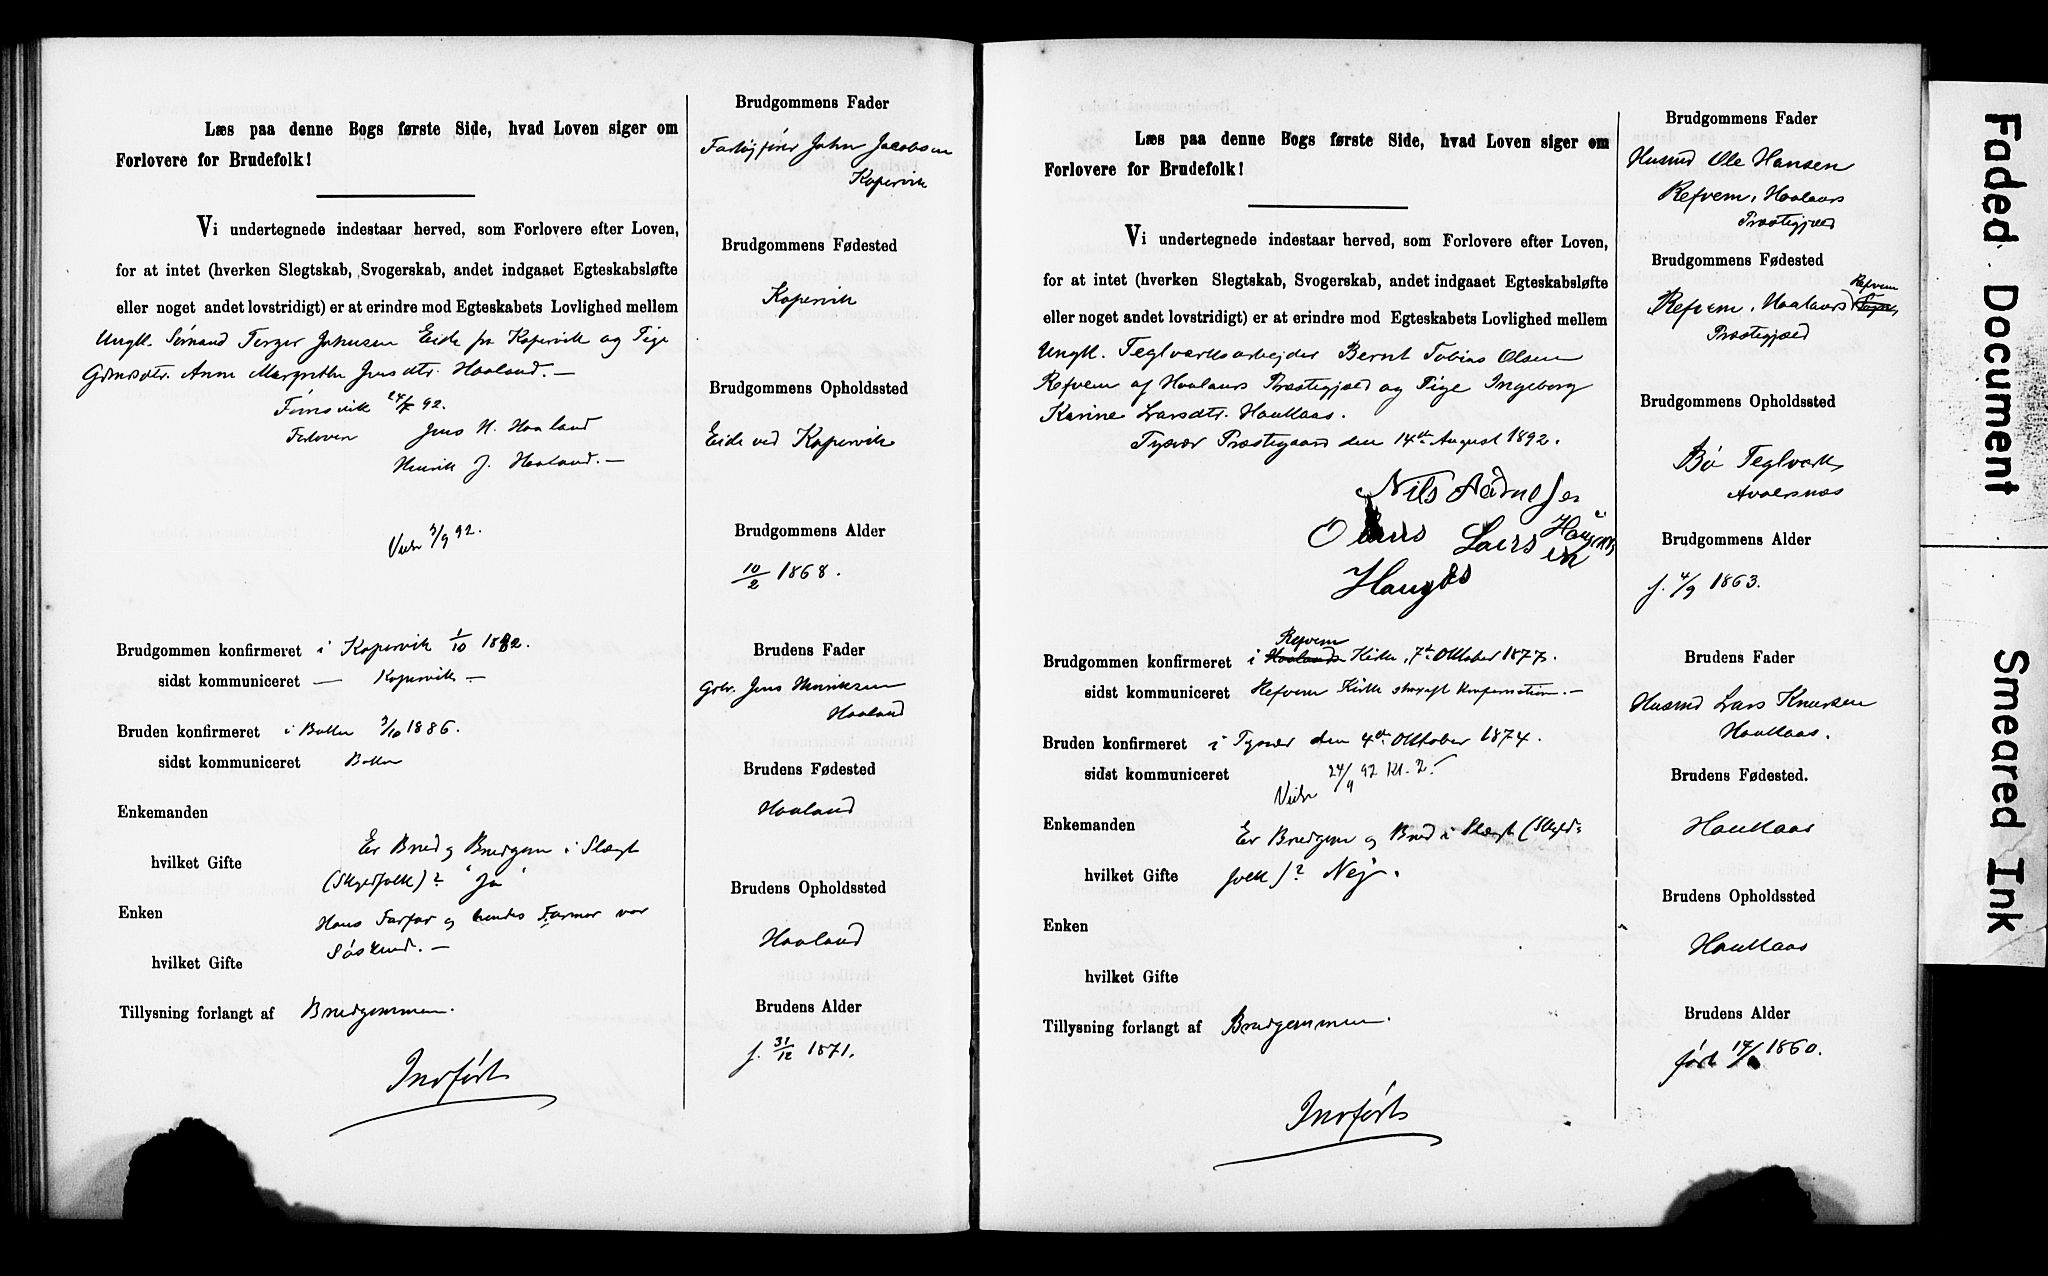 Læs paa denne Bogs første Side, hvad Loven siger om
Forlovere for Brudefolk!
Vi undertegnede indestaar herved, som Forlovere efter Loven,
for at intet (hverken Slegtskab, Svogerskab, andet indgaaet Egteskabsløfte
eller noget andet lovstridigt) er at erindre mod Egteskabets Lovlighed mellem
Ungk. Sørnand Johnsen Eide fra Kopervik og Pige
Grdmsdtr. Anne Margrethe Jensdtr. Haaland. —
24/8 92.
Forlovere Jens H. Haaland
Henrik J. Haaland. —
Viede 3/9 92.
Brudgommen konfirmeret i Kopervik 1/10 1882.
sidst kommuniceret — Kopervik —
Bruden konfirmeret i Bokn 3/10 1886.
sidst kommuniceret Bokn
Enkemanden
Er Brud og Brudgom i Slægt
hvilket Gifte
(Skyldfolk)? "Ja"
Enken
Hans Farfar og hendes Farmor var
Søskend. —
hvilket Gifte
Tillysning forlangt af Brudgommen.
Indført
Brudgommens Fader
Fartøjfører John Jacobsen
Kopervik
Brudgommens Fødested
Kopervik
Brudgommens Opholdssted
Eide ved Kopervik
Brudgommens Alder
10/2 1868.
Brudens Fader
Grbr. Jens Henriksen
Haaland
Brudens Fødested
Haaland
Brudens Opholdssted
Haaland
Brudens Alder
f. 31/12 1871.
Læs paa denne Bogs første Side, hvad Loven siger om
Forlovere for Brudefolk!
Vi undertegnede indestaar herved, som Forlovere efter Loven,
for at intet (hverken Slegtskab, Svogerskab, andet indgaaet Egteskabsløfte
eller noget andet lovstridigt) er at erindre mod Egteskabets Lovlighed mellem
Ungk. Teglværksarbejder Bernt Tobias Olsen
Refvem af Haalands Præstegjæld og Pige Ingeborg
Karine Larsdtr. Haukaas.
Tysvær Præstegaard den 14de August 1892.
Nils
Lars
Brudgommen konfirmeret i Refvem Kirke, 7de Oktober 1877.
sidst kommuniceret Refvem Kirke straks Konfirmation. —
Bruden konfirmeret i Tysvær den 4de Oktober 1874.
sidst kommuniceret
Viede 24/9 92 Kl. 2.
Enkemanden
Er Brudgom og Brud i Slægt (Skyld=
hvilket Gifte
folk)? Nej.
Enken
hvilket Gifte
Tillysning forlangt af Brudgommen.
Indført
Brudgommens Fader
Husmd Ole Hansen
Refvem, Haalands
Præstegjæld
Brudgommens Fødested
Refvem
Refvem, Haalands Sogn
Præstegjæld
Brudgommens Opholdssted
Bø Teglværk
Avaldsnæs
Brudgommens Alder
f. 4/9 1863.
Brudens Fader
Husmd Lars Knutsen
Haukaas.
Brudens Fødested.
Haukaas
Brudens Opholdssted
Haukaas
Brudens Alder
født 1860.
Faded Document
Smeared Ink